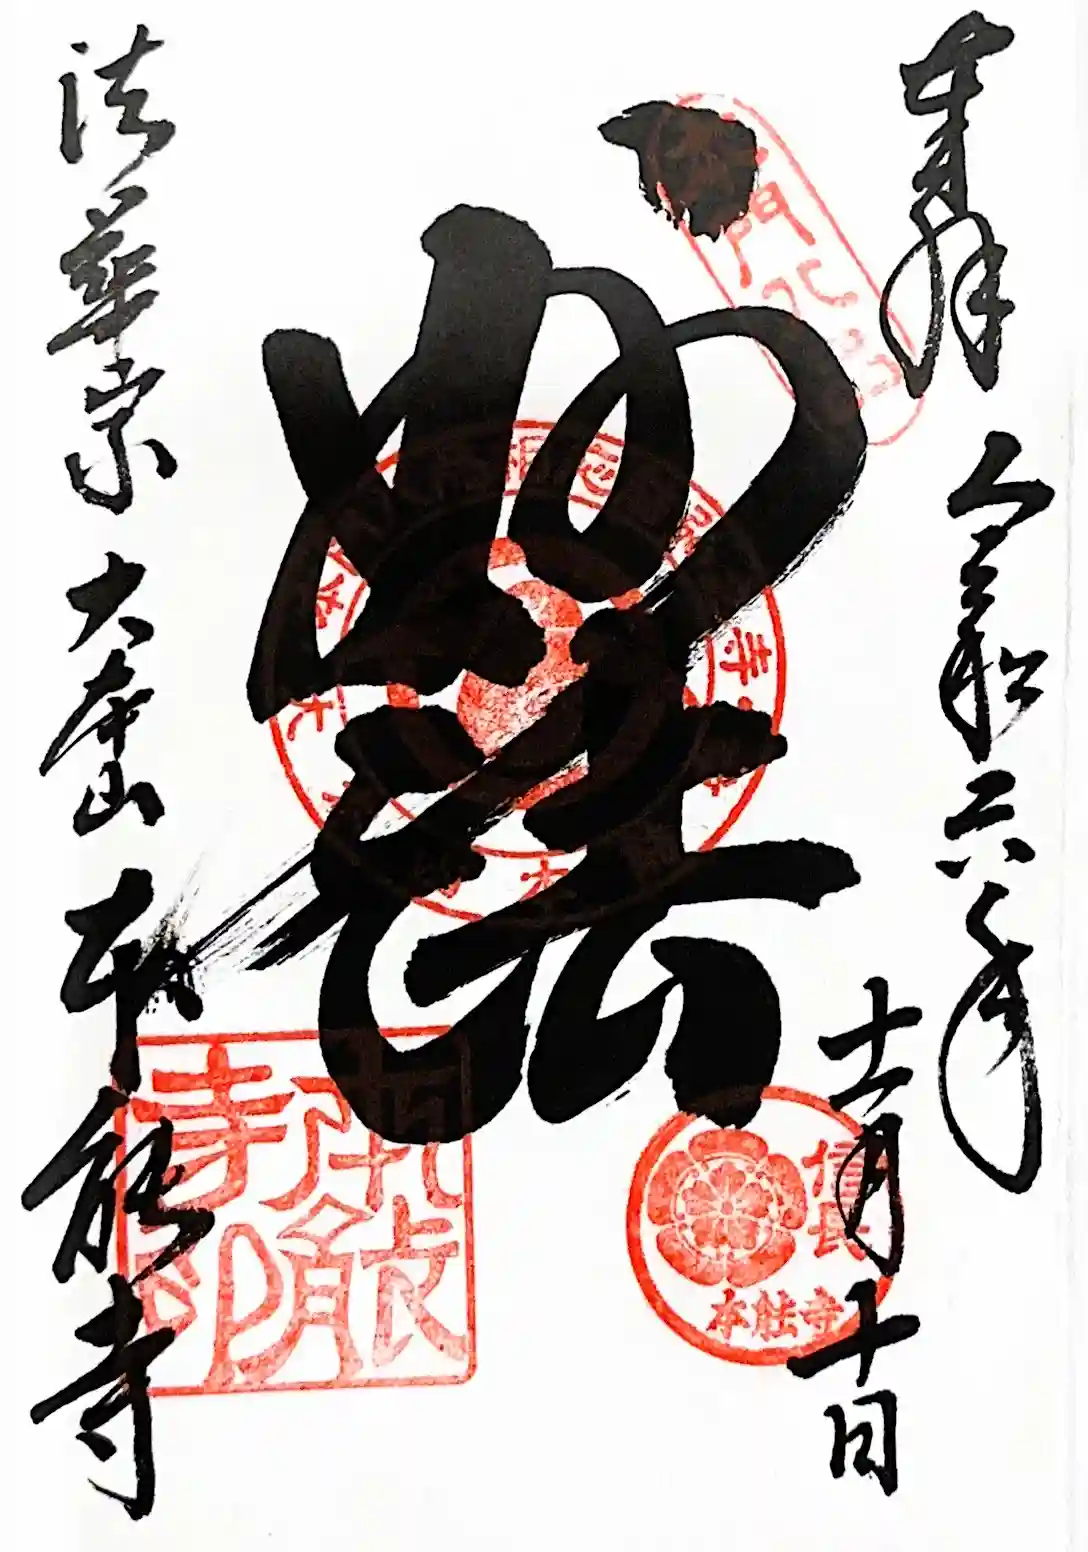 奉拝
令和六年
十一月十日
妙法
法華宗
大本山
本能寺
信長
本能寺
本能寺印